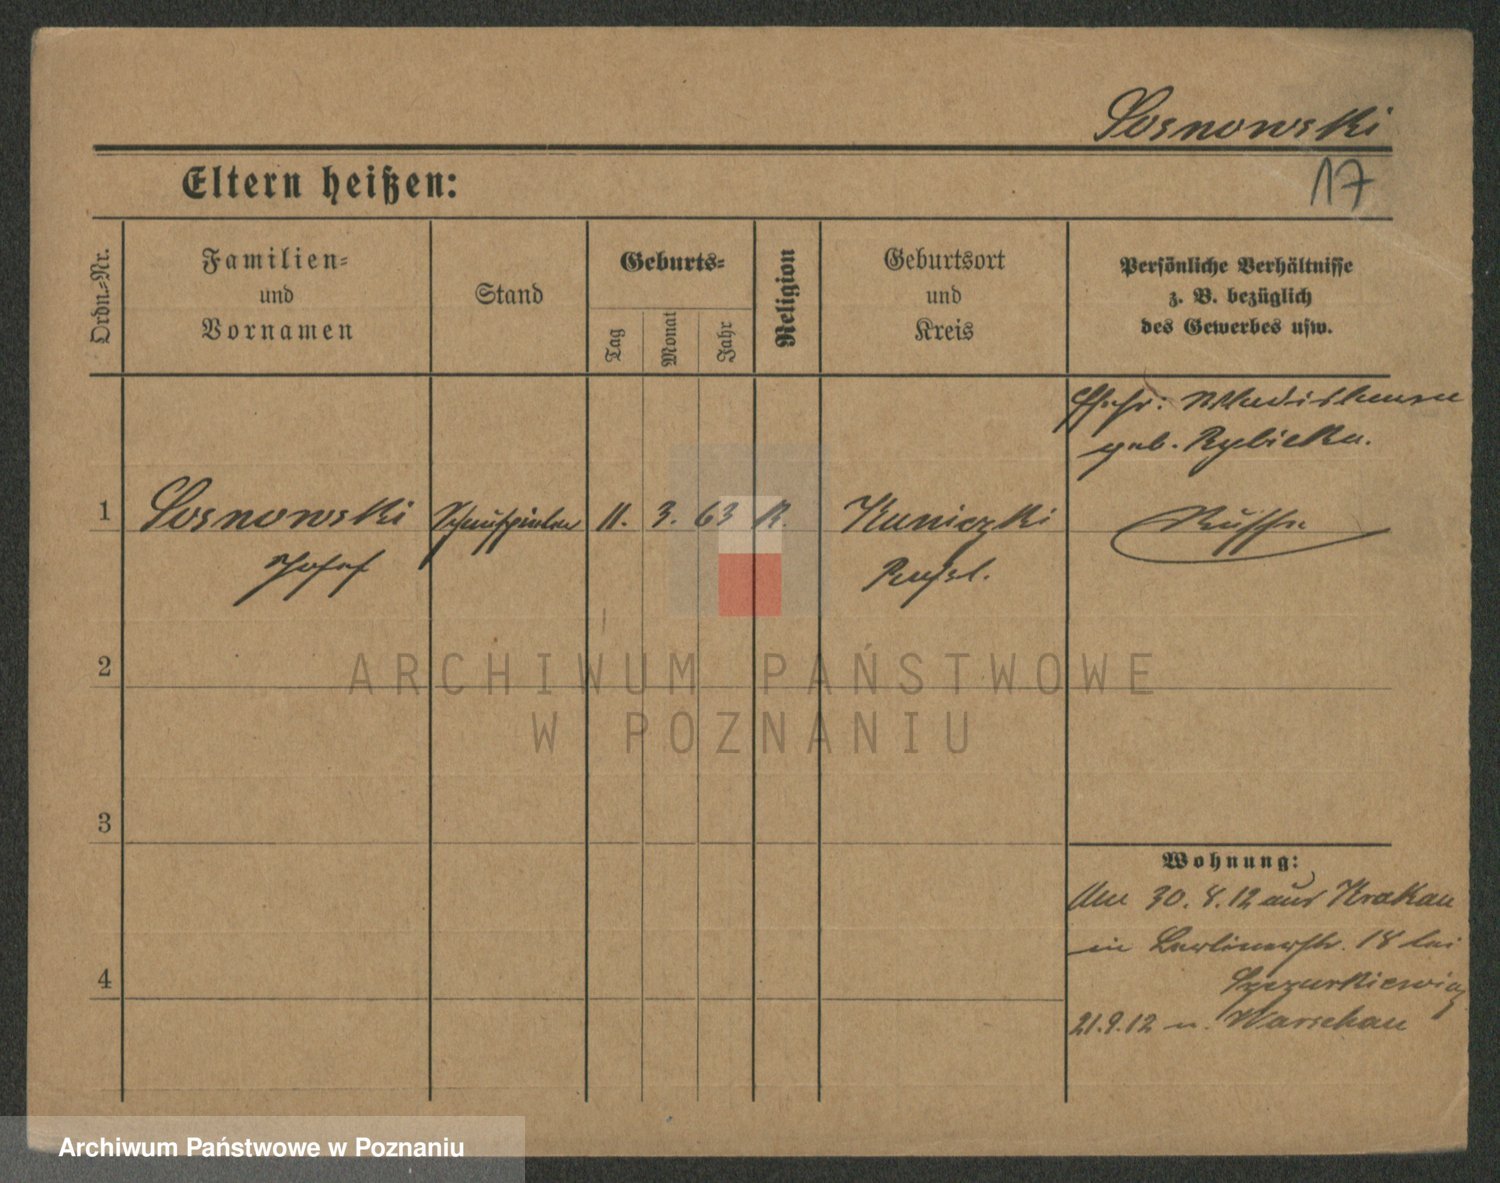 Sosnowski
17
Eltern heißen:
Ordn.-Nr.
Familien-
und
Vornamen
Stand
Geburts-
Tag
Monat
Jahr
Religion
Geburtsort
und
Kreis
Persönliche Verhältnisse
z. B. bezüglich
des Gewerbes usw.
Ehefr: Wladislawa
geb. Rybicka.
1 Sosnowski Schauspieler 11. 3. 63 K. Kuniczki Russe
Josef Russl.
2
3
4
Wohnung:
Am 30.8.12 aus Krakau
in Berlinerstr. 18 bei
Szczurkiewicz
21.9.12 n. Warschau
ARCHIWUM PAŃSTWOWE
W POZNANIU
Archiwum Państwowe w Poznaniu